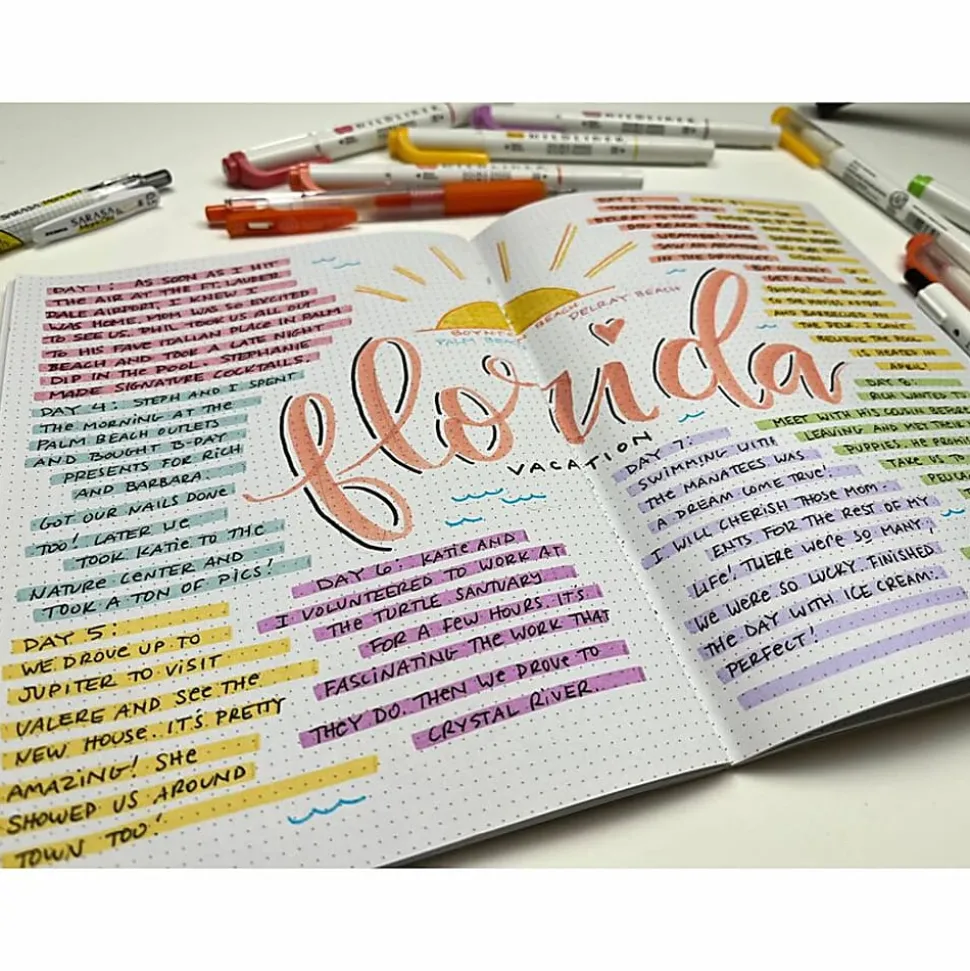 DAY 1: AS SOON AS I HIT
THE AIR AT THE FT. LAUDER
DALE AIRPORT, I KNEW I
WAS HOME. MOM WAS SO EXCITED
TO SEE US. PHIL TOOK US ALL OUT
TO HIS FAVE ITALIAN PLACE IN PALM
BEACH AND TOOK A LATE NIGHT
DIP IN THE POOL. STEPHANIE
MADE SIGNATURE COCKTAILS.
DAY 4: STEPH AND I SPENT
THE MORNING AT THE
PALM BEACH OUTLETS
AND BOUGHT B-DAY
PRESENTS FOR RICH
AND BARBARA.
GOT OUR NAILS DONE
TOO! LATER WE
TOOK KATIE TO THE
NATURE CENTER AND
TOOK A TON OF PICS!
DAY 5:
WE DROVE UP TO
JUPITER TO VISIT
VALERE AND SEE THE
NEW HOUSE. IT'S PRETTY
AMAZING! SHE
SHOWED US AROUND
TOWN TOO!
BEACH
DELRAY BEACH
PALM BEA
florida
VACATION
DAY 6: KATIE AND
I VOLUNTEERED TO WORK AT
THE TURTLE SANTUARY
FOR A FEW HOURS. IT'S
FASCINATING THE WORK THAT
THEY DO. THEN WE DROVE TO
CRYSTAL RIVER.
IN THE
TO THE MOVIES
AND BARBECUED ON
THE DECK. I CAN'T
BELIEVE THE POOL
IS HEATED IN
APRIL!
DAY 7:
SWIMMING WITH
THE MANATEES WAS
A DREAM COME TRUE!
I WILL CHERISH THOSE MOM-
ENTS FOR THE REST OF MY
LIFE! THERE WERE SO MANY,
WE WERE SO LUCKY. FINISHED
THE DAY WITH ICE CREAM.
PERFECT!
DAY 8:
RICH WANTED T
MEET WITH HIS COUSIN BEFOR
LEAVING AND MET THEIR
PUPPIES. HE PROMI
TAKE US TO
SARASA